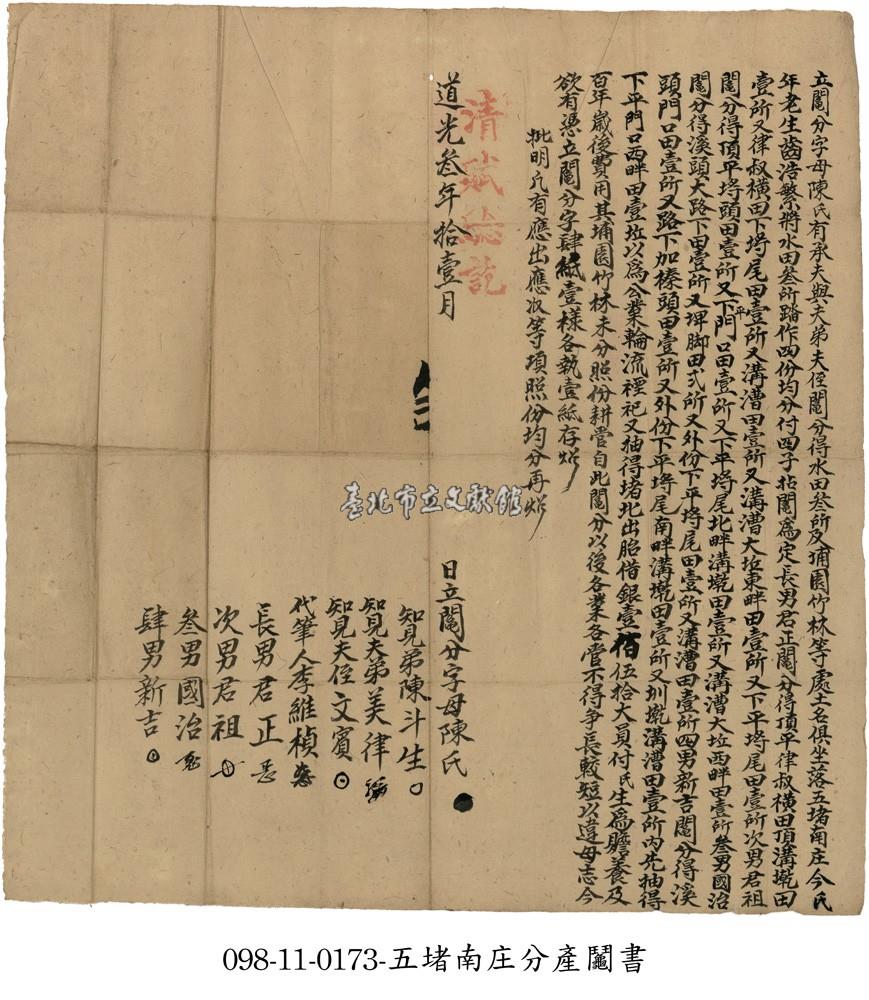 立鬮分字母陳氏有承夫與夫弟夫侄鬮分得水田叁所及埔園竹林等處土名俱坐落五堵南庄今氏
年老生齒浩繁將水田叁所踏作四份均分付四子拈鬮為定長男君正鬮分得頂平律叔橫田頂溝墘田
壹所又律叔橫田下埒尾田壹所又溝漕田壹所又溝漕大坵東畔田壹所又下平埒尾田壹所次男君祖
鬮分得頂平埒頭田壹所又下平門口田壹所又下平埒尾北畔溝墘田壹所又溝漕大坵西畔田壹所叁男國治
鬮分得溪頭大路下田壹所又埤脚田弍所又外份下平埒尾田壹所又溝漕田壹所四男新吉鬮分得溪
頭門口田壹所又路下加榛頭田壹所又外份下平埒尾南畔溝墘田壹所又圳墘溝漕田壹所內先抽得
下平門口西畔田壹坵以為公業輪流禋祀又抽得堵北出胎借銀壹佰伍拾大員付氏生為贍養及
百年歲後費用其埔園竹林未分照份耕管自此鬮分以後各業各當不得爭長較短以違母志今
欲有憑立鬮分字肆紙壹樣各執壹紙存炤
批明凡有應出應收等項照份均分再炤
清賦驗訖
道光叁年拾壹月
日立鬮分字母陳氏
知見弟陳斗生
知見夫弟美律
知見夫侄文賓
代筆人李維楨
長男君正
次男君祖
叁男國治
肆男新吉
臺北市立文獻館
098-11-0173-五堵南庄分產鬮書